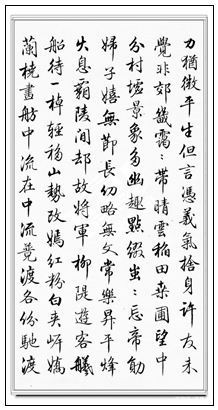 力猶微平生但言憑義氣捨身許友未
覺非郊畿靄々帶晴雲稻田桑圃望中
分村墟景象多幽趣點綴出々忘帝勛
婦子嬉無節長幼略無文常樂昇平烽
火息霸陵間却故將軍柳隄遊客艤
船待一棹輕移山勢改嫣紅粉白夾岸嬌
蘭橈畫舫中流在中流競渡各份馳渡